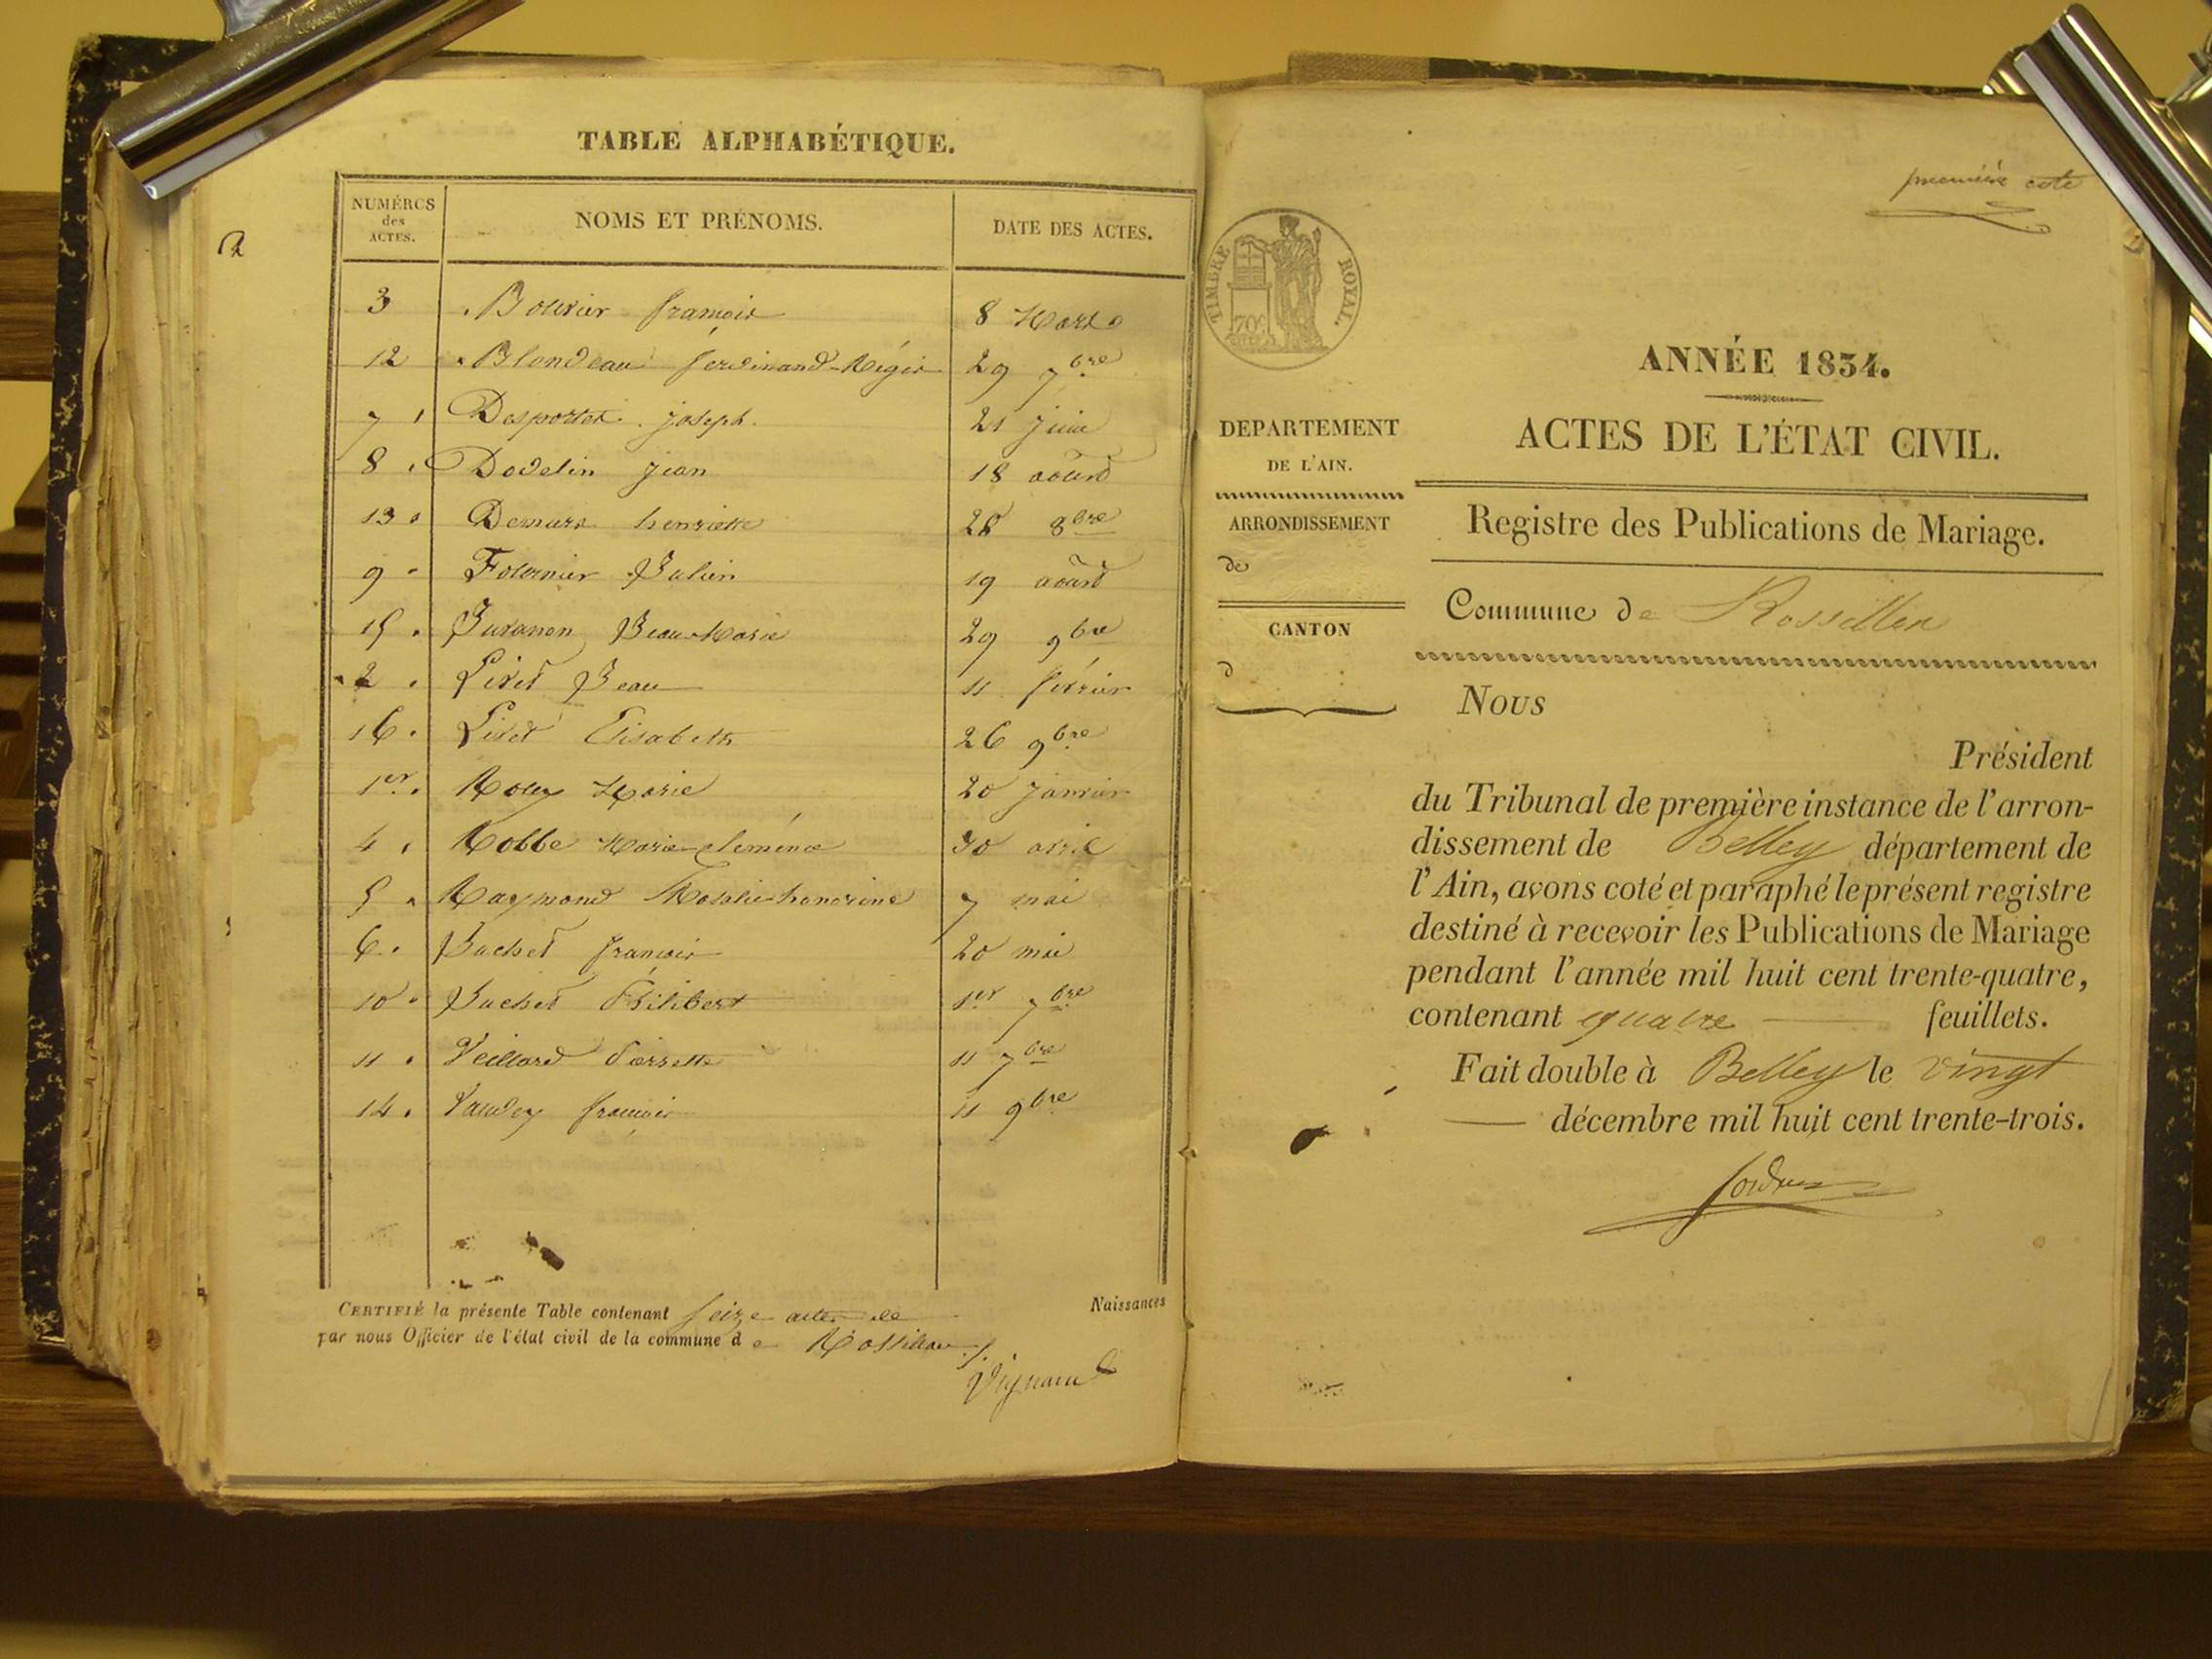 TABLE ALPHABÉTIQUE.
NUMÉROS des ACTES. NOMS ET PRÉNOMS. DATE DES ACTES.
2
3 Bouvier françois 8 Mars
12 Blondeau ferdinand-Régis 29 7bre
7 Desportes joseph. 21 juin
8 Dodelin jean 18 aoust
13 Demars henriette 28 8bre
9 Fournier Julien 19 aoust
15 Juvanon Jean Marie 29 9bre
2 Livet Jean 11 février
16 Livet Elisabeth 26 9bre
1er Roux Marie 20 janvier
4 Robbe Marie-cléménce 30 avril
5 Raymond Rosalie honorine 7 mai
6 françois 20 mai
10 Philibert 1er 7bre
11 Veillard Pierrette 11 7bre
14 françois 11 9bre
CERTIFIÉ la présente Table contenant seize actes de Naissances
par nous Officier de l'état civil de la commune de Rossillon
première cote
TIMBRE ROYAL.
70c
ANNÉE 1834.
DEPARTEMENT
DE L'AIN.
ACTES DE L'ÉTAT CIVIL.
ARRONDISSEMENT
de
Registre des Publications de Mariage.
CANTON
d
Commune de Rossillon
Nous
Président
du Tribunal de première instance de l'arron-
dissement de Belley département de
l'Ain, avons coté et paraphé le présent registre
destiné à recevoir les Publications de Mariage
pendant l'année mil huit cent trente-quatre,
contenant quatre feuillets.
Fait double à Belley le vingt
décembre mil huit cent trente-trois.